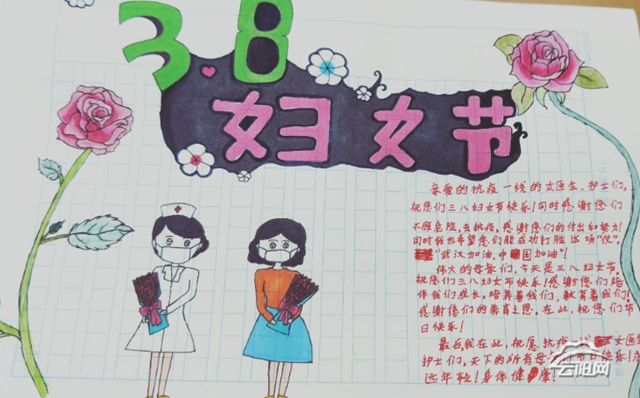 3.8
妇女节
亲爱的抗疫一线的女医生、护士们,
祝您们三八妇女节快乐!同时感谢您们
不顾危险,去抗疫,感谢您们的付出和努力!
同时我也希望您们能成功打胜这场“役”。
“武汉加油,中国加油”!
伟大的母亲们,今天是三八妇女节,
祝您们三八妇女节快乐!感谢您们陪
伴我们成长,培养着我们,教育着我们!
感谢您们的养育之恩,在此,祝您们节
日快乐!
最后我在此,祝愿抗疫一线女医生
护士们,天下的所有母亲们节日快乐!
远年轻!身体健康!
云阳网